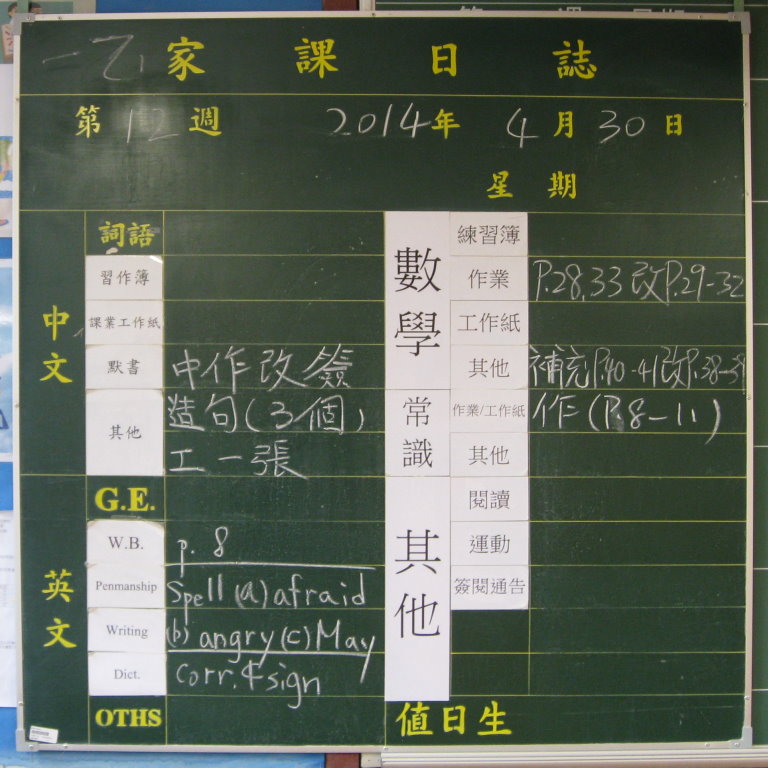 一乙 家課日誌
第12週 2014年4月30日
星期
中文
詞語
習作簿
課業工作紙
默書 中作改簽
其他 造句(3個)
工一張
英文
G.E.
W.B. p.8
Penmanship Spell (a) afraid
Writing (b) angry (c) May
Dict. corr. & sign
OTHS
數學
練習簿
作業 P.28,33 改P.29-32
工作紙
其他 補充P.40-41改P.38-39
常識
作業/工作紙 作(P.8-11)
其他
其他
閱讀
運動
簽閱通告
值日生